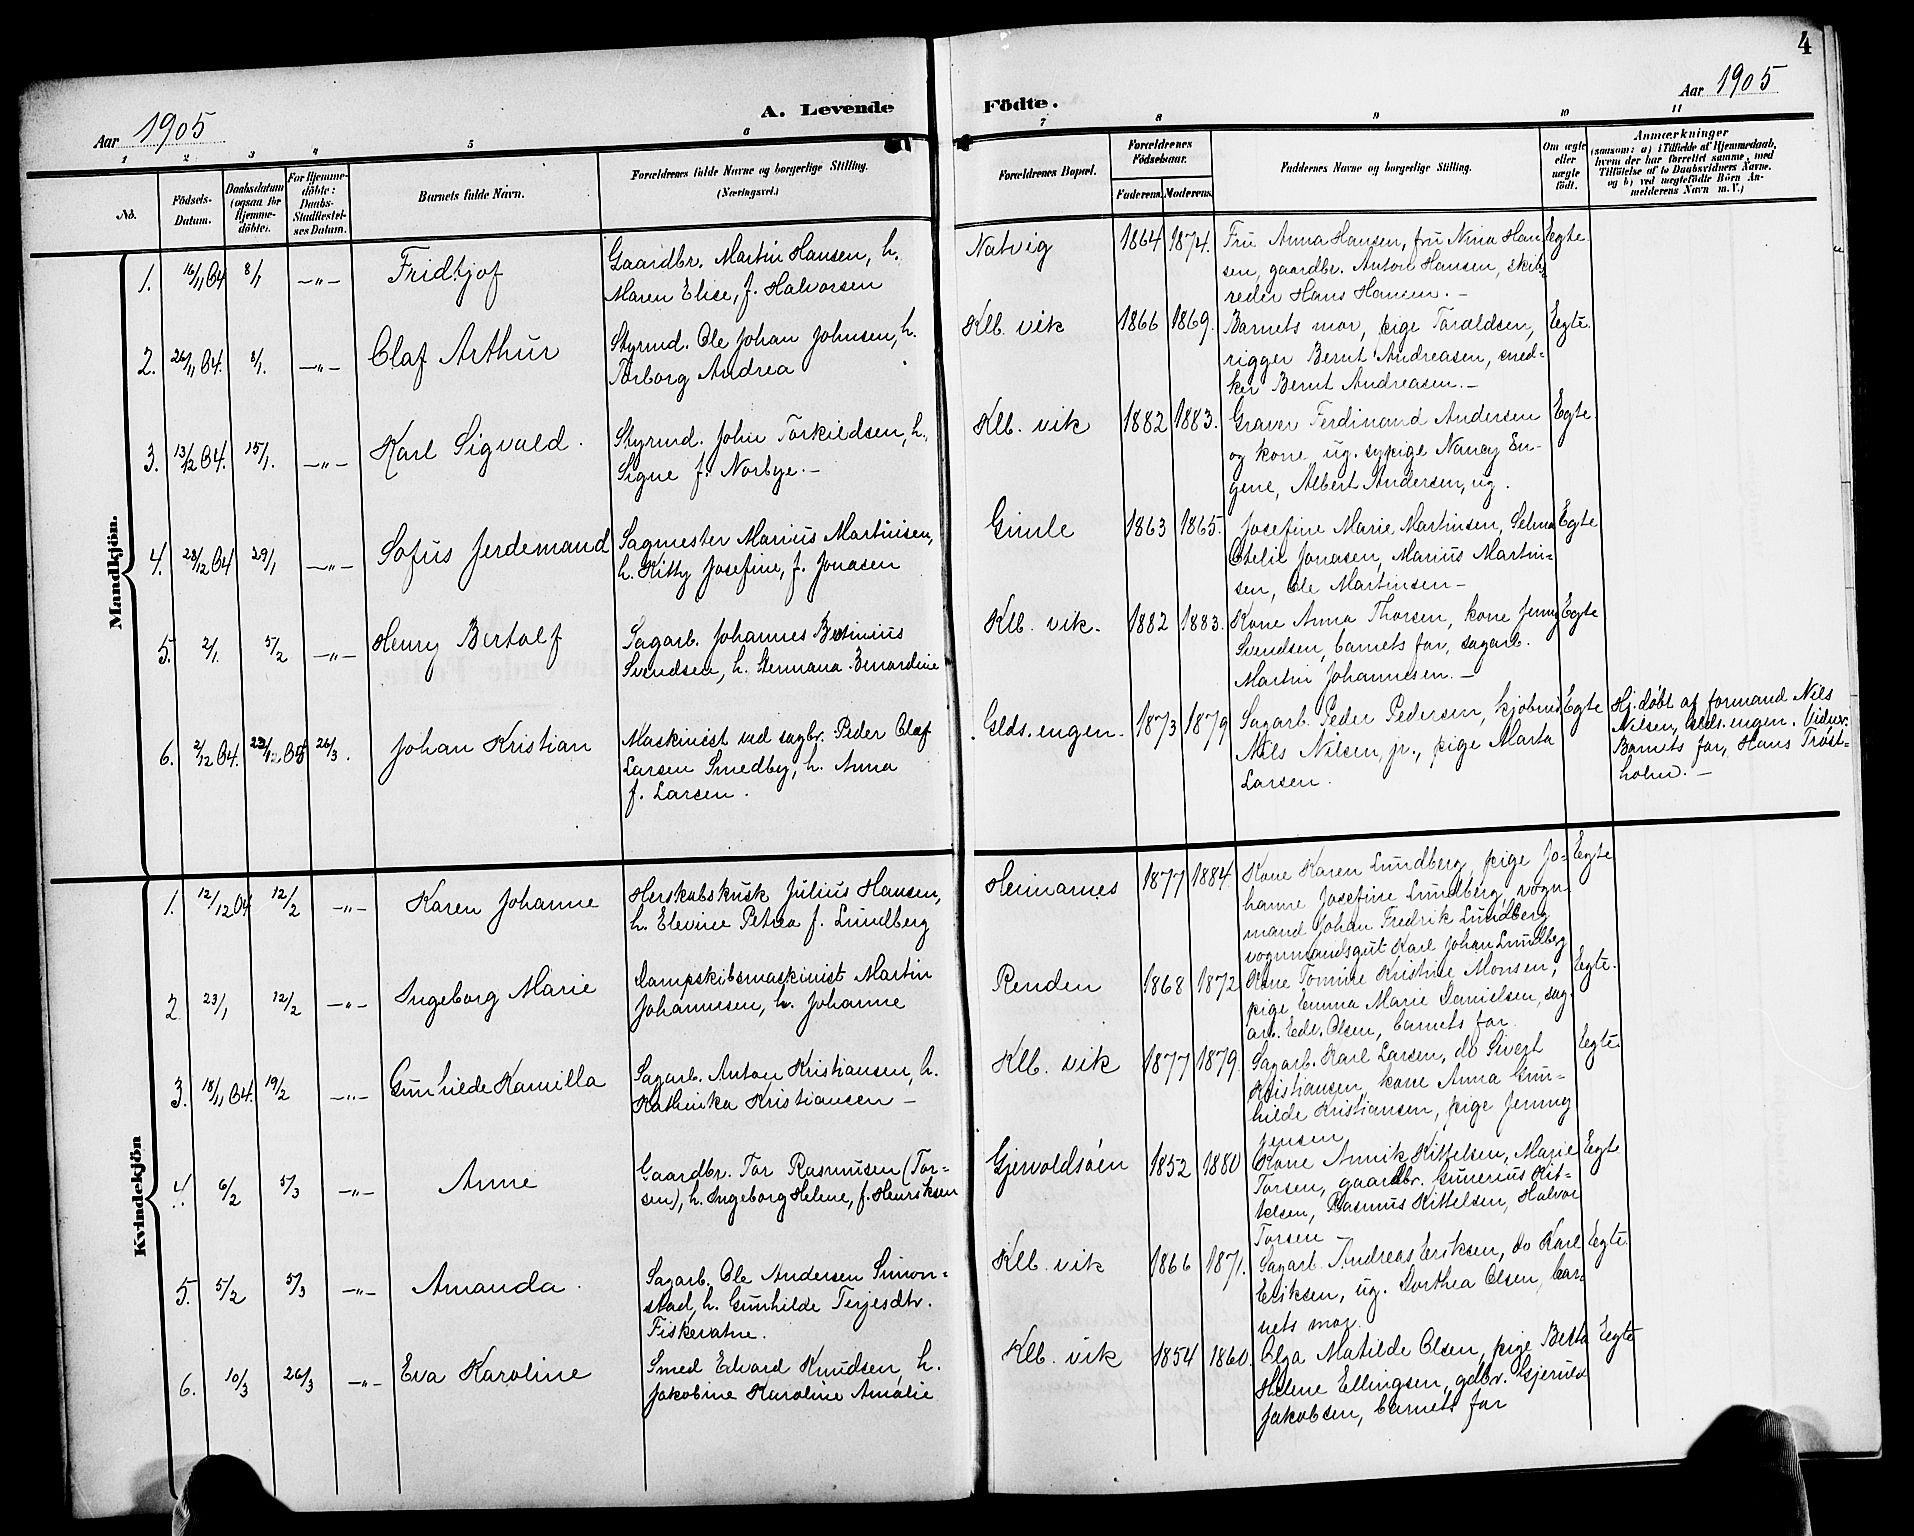 4
Aar 1905
A. Levende Födte.
Aar 1905
1 2 3 4 5 6 7 8 9 10 11
No.
Födsels-Datum.
Daabsdatum (ogsaa for Hjemme-döbte).
For Hjemme-döbte: Daabs-Stadfæstel-ses Datum.
Barnets fulde Navn.
Forældrenes fulde Navne og borgerlige Stilling. (Næringsvei.)
Forældrenes Bopæl.
Forældrenes Födselsaar.
Faderens. Moderens.
Faddernes Navne og borgerlige Stilling.
Om ægte eller uægte födt.
Anmærkninger
(saasom: a) i Tilfælde af Hjemmedaab, hvem der har forrettet samme, med Tilföielse af to Daabsvidners Navne. og b) ved uægtefödte Börn An-melderens Navn m. V.)
Mandkjön.
1. 16/11 04 8/1 —"— Fridtjof
Gaardbr. Martin Hansen, h.
Maren Elise, f. Halvorsen
Natvig 1864 1874.
Fru Anna Hansen, fru Nina Han
sen, gaardbr. Anton Hansen, skib-
reder Hans Hansen. —
Egte.
2. 26/11 04. 8/1. —"— Olaf Arthur
Styrmd. Ole Johan Johnsen, h.
Torborg Andrea
Klb. vik 1866 1869.
Barnets mor, pige Taraldsen,
rigger Bernt Andreasen, sned-
ker Bernt Andreasen. —
Egte.
3. 13/12 04. 15/1. —"— Karl Sigvald.
Styrmd. John Torkildsen, h.
Signe f. Norbye. —
Klb. vik 1882 1883.
Graver Ferdinand Andersen
og kone ug. sypige Nancy En-
gene, Albert Andersen, ug.
Egte.
4. 28/12 04 29/1 —"— Sofus Ferdemand
Sagmester Marius Martinsen,
h. Kitty Josefine, f. Jonasen
Gimle 1863 1865.
Josefine Marie Martinsen, Selma
Otelie Jonasen, Marius Martin-
sen, Ole Martinsen —
Egte
5. 2/1. 5/2 —"— Henry Bertolf
Sagarb. Johannes Bertinius
Svendsen, h. Hermana Bernardine
Klb. vik. 1882 1883.
Kone Anna Thorsen, kone Jenny
Svendsen, barnets far, sagarb.
Martin Johannesen. —
Egte
6. 2/12 04. 23/12 05 26/3. Johan Kristian
Maskinist ved sagbr. Peder Olaf
Larsen Smedby, h. Anna
f. Larsen.
Glds. engen. 1873 1879
Sagarb. Peder Pedersen, kjøbmd
Nils Nilsen, jr., pige Marta
Larsen.
Egte
Hj. døbt af formand Nils
Nilsen, Glds. engen. Vidner:
Barnets far, Hans Trøst-
holm. —
Kvindekjön
1. 12/12 04 12/2 —"— Karen Johanne
Herskabskusk Julius Hansen,
h. Elevine Petrea f. Lundberg
Heimarnes 1877 1884.
Kone Karen Lundberg, pige Jo-
hanne Josefine Lundberg, vogn
mand Johan Fredrik Lundberg
vognmandsgut Karl Johan Lundberg
Egte
2 23/1 12/2 —"— Ingeborg Marie
Dampskibsmaskinist Martin
Johannesen, h. Johanne
Renden 1868 1872
Kone Tomine Kristine Monsen,
pige Emma Marie Danielsen, sag-
arb. Edv. Olsen, barnets far.
Egte.
3. 18/11 04. 19/2 —"— Gunhilde Kamilla
Sagarb. Anton Kristiansen, h.
Kathinka Kristiansen —
Klb. vik 1877 1879.
Sagarb. Karl Larsen, do Sivert
Kristiansen, kone Anna Gun-
hilde Kristiansen, pige Jenny
Jensen
Egte
4. 6/2 5/3 —"— Anne
Gaardbr. Tor Rasmusen (Tor-
sen), h. Ingeborg Helene, f. Henriksen
Gjervoldsøen 1852 1880
Kone Annik Kittelsen, Marie
Torsen, gaardbr. Gunerius Kit-
telsen, Rasmus Kittelsen, Halvor
Torsen —
Egte
5. 5/2 5/3 —"— Amanda.
Sagarb. Ole Andersen Simon-
stad, h. Gunhilde Terjesdtr.
Fiskevatne.
Klb. vik 1866 1871.
Sagarb. Andreas Eriksen, do Karl
Eriksen, ug. Dorthea Olsen, bar-
nets mor.
Egte
6. 10/3 26/3 —"— Eva Karoline
Smed Edvard Knudsen, h.
Jakobine Karoline Amalie
Klb. vik 1854 1860.
Olga Matilde Olsen, pige Berta
Helene Ellingsen, gdbr. Gjeruld
Jakobsen, barnets far
Egte